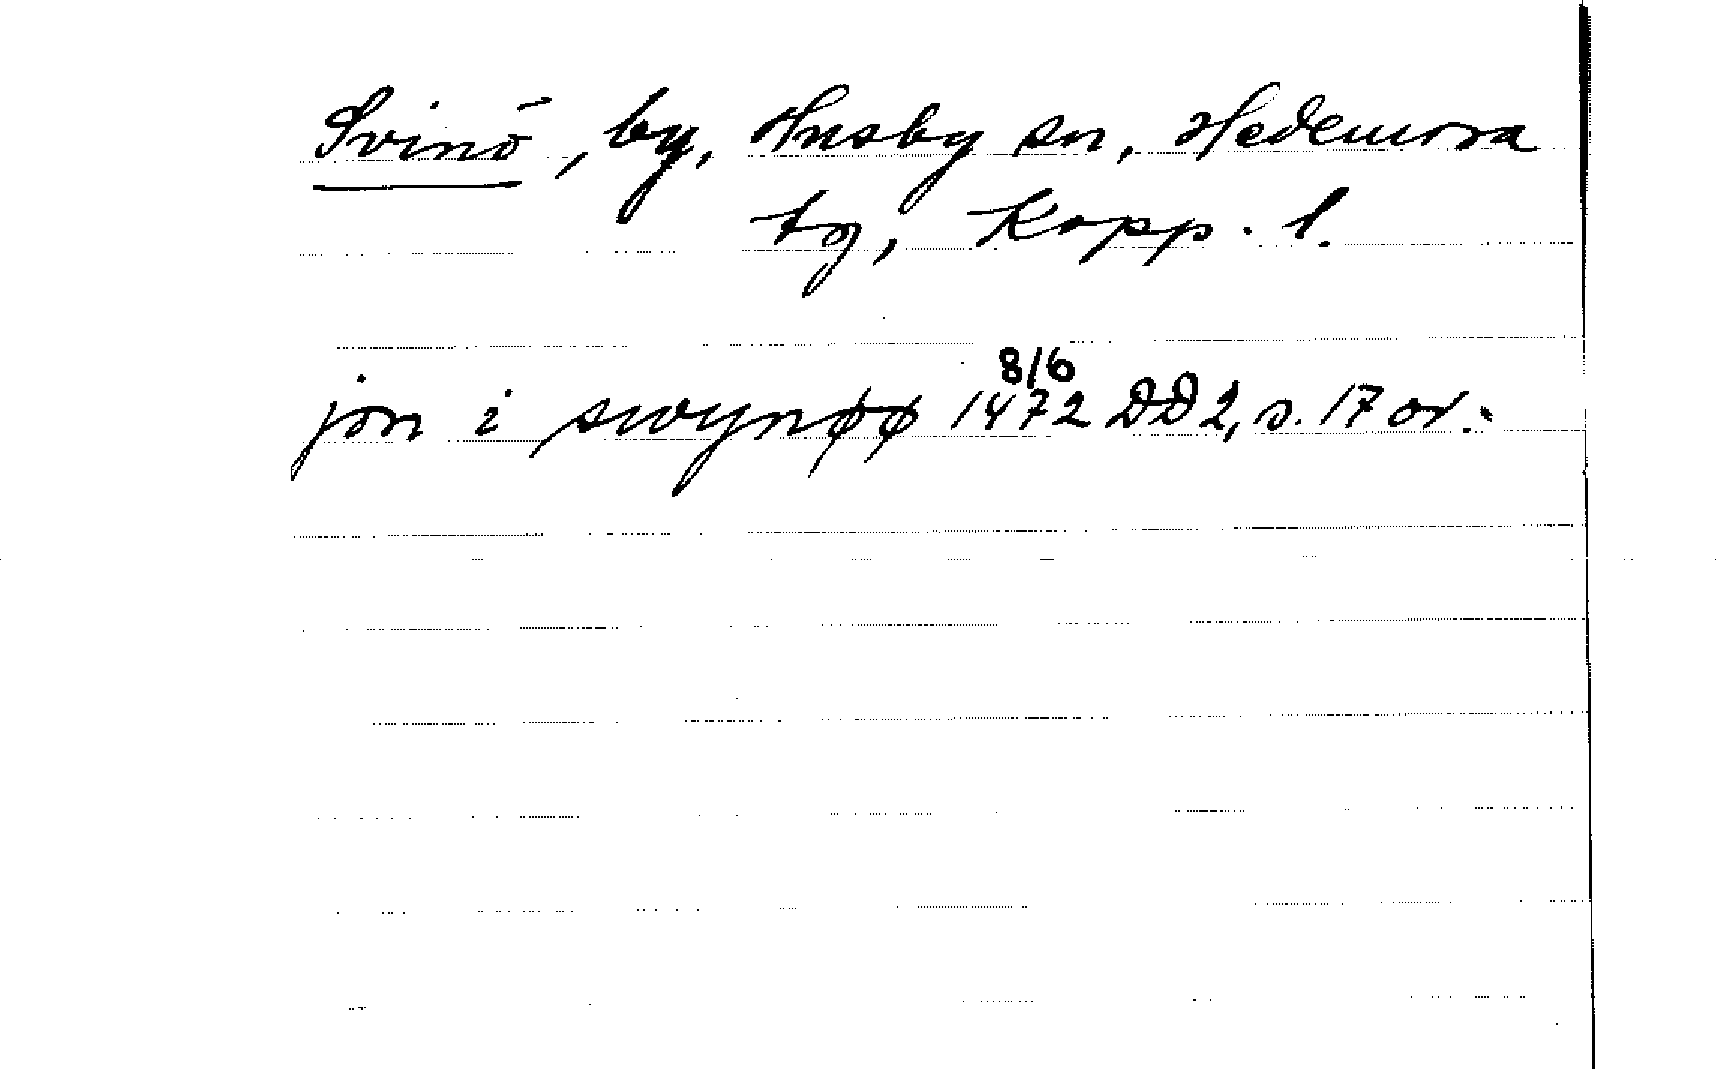 Svinö, by, Husby sn, Hedemora
tg, Kopp. l.
8/6
jon i swynøø 1472 DD2, s. 17 or.